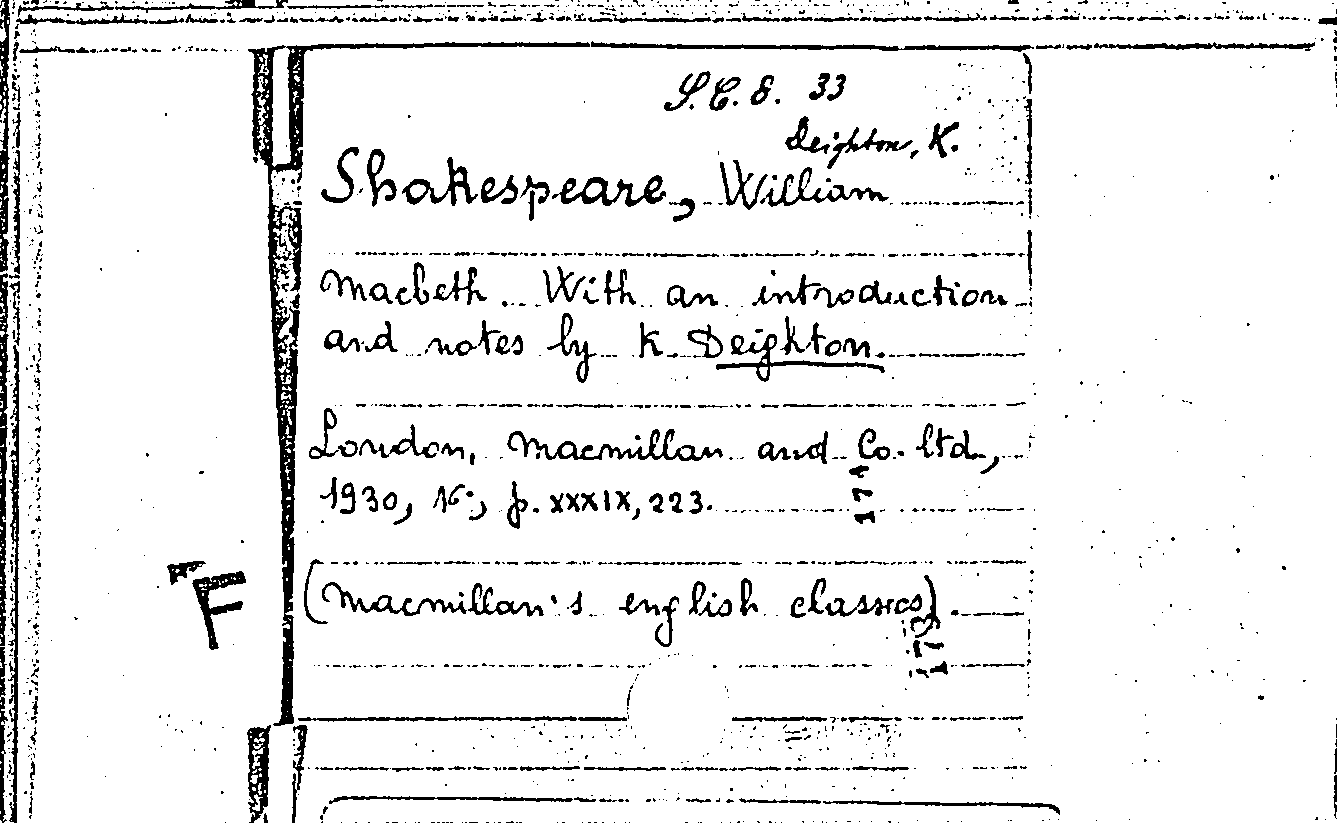 S.C.E. 33
Deighton, K.
Shakespeare, William
Macbeth. With an introduction
and notes by K. Deighton.
London, Macmillan and Co. ltd.,
1930, 16°, p. XXXIX, 223.
171
(Macmillan's english classics).
173
F